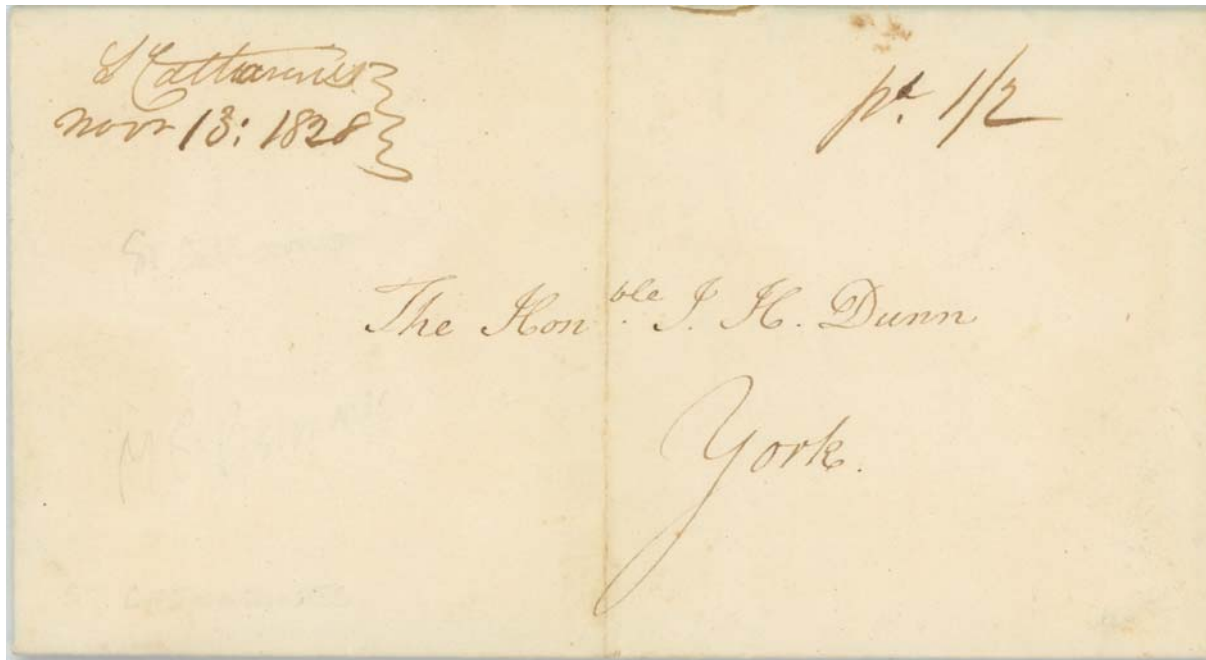 St Catharines
Novr 13: 1828
pd. 1/2
The Honble. J. H. Dunn
York.